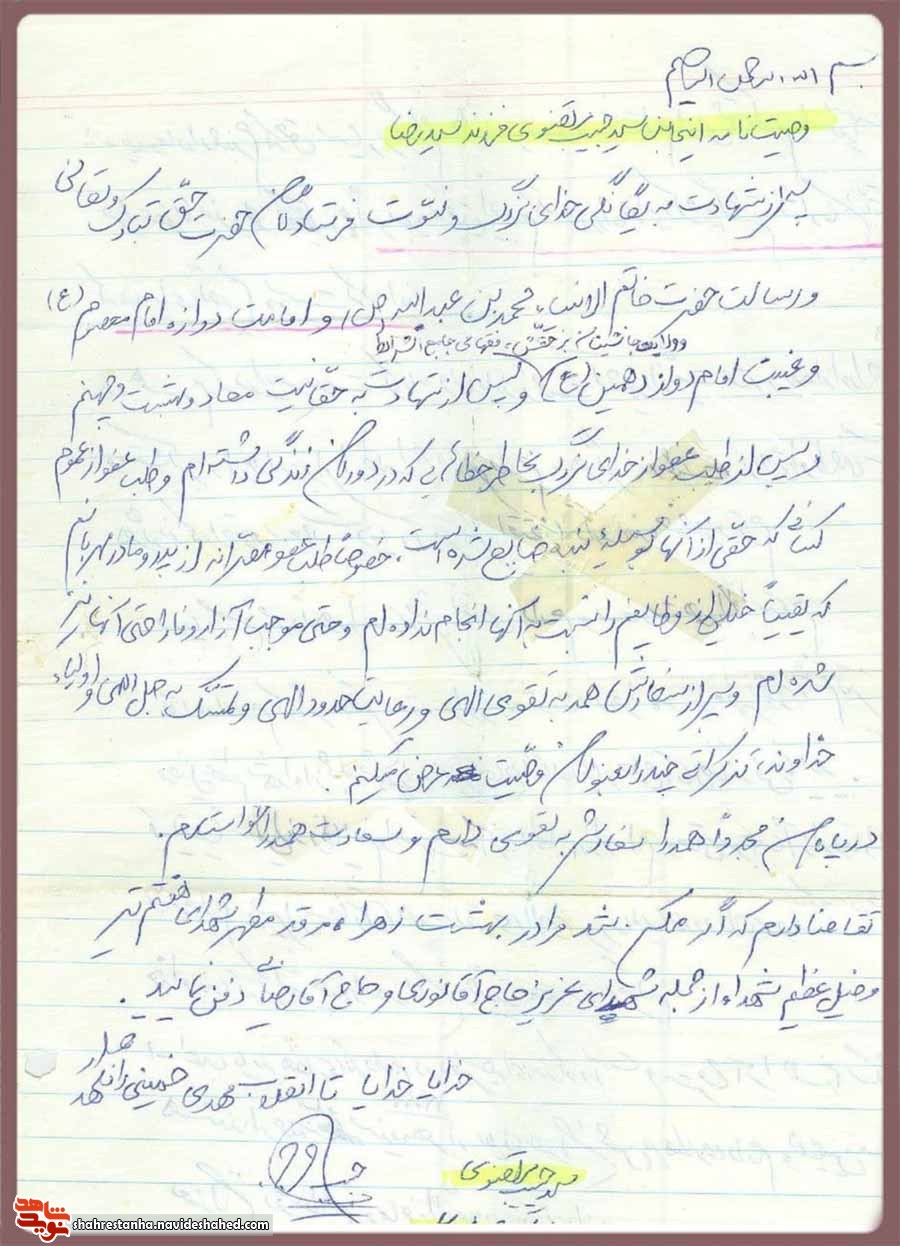 بسم الله الرحمن الرحیم
وصیت نامه اینجانب سید حبیب تقوی فرزند سید رضا
پس از شهادت به یگانگی خدای بزرگ و نبوت فرستادگان حضرت حق تبارک و تعالی
و رسالت حضرت خاتم الانبیاء محمد بن عبدالله (ص) و امامت دوازده امام معصوم (ع)
و ولایت جانشینان بر حقش، فقهای جامع الشرایط
و غیبت امام دوازدهمین (عج) و پس از شهادت به حقانیت معاد و بهشت و جهنم
و پس از طلب عفو از خدای بزرگ بخاطر خطاهایی که در دوران زندگی داشته‌ام و طلب عفو از عموم
کسانی که حقی از آنها بوسیله بنده ضایع شده است، خصوصاً طلب عفو از پدر و مادر مهربانم
که یقیناً خیلی از وظایفم را نسبت به آنها انجام نداده‌ام و حتی موجب آزار و ناراحتی آنها نیز
شده‌ام و پس از سفارش همه به تقوی الهی و رعایت حدود الهی و تمسک به حبل الهی و اولیاء
خداوند، تذکراتی چند را بعنوان وصیت عرض میکنم.
در پایان مجدداً همه را سفارش به تقوی دارم و سعادت همه را خواستارم.
تقاضا دارم که اگر ممکن شد مرا در بهشت زهرا، مرقد مطهر شهدای هفتم تیر
و خیل عظیم شهداء از جمله شهدای عزیز حاج آقا نوری و حاج آقا رضائی دفن نمائید.
خدایا خدایا تا انقلاب مهدی خمینی را نگهدار
سید حبیب تقوی
شاهد نوید
shahrestanha.navideshahed.com